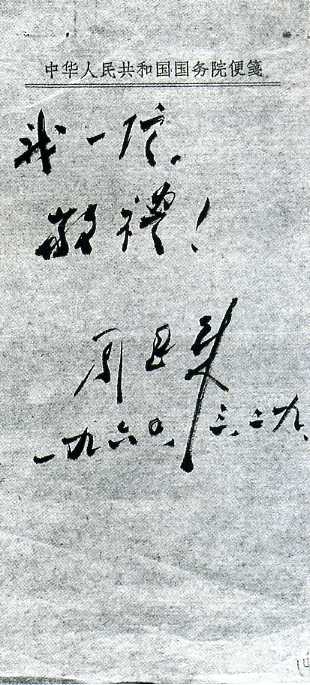 中华人民共和国国务院便笺
我一信。
敬禮！
周恩来
一九六〇、三、二九、